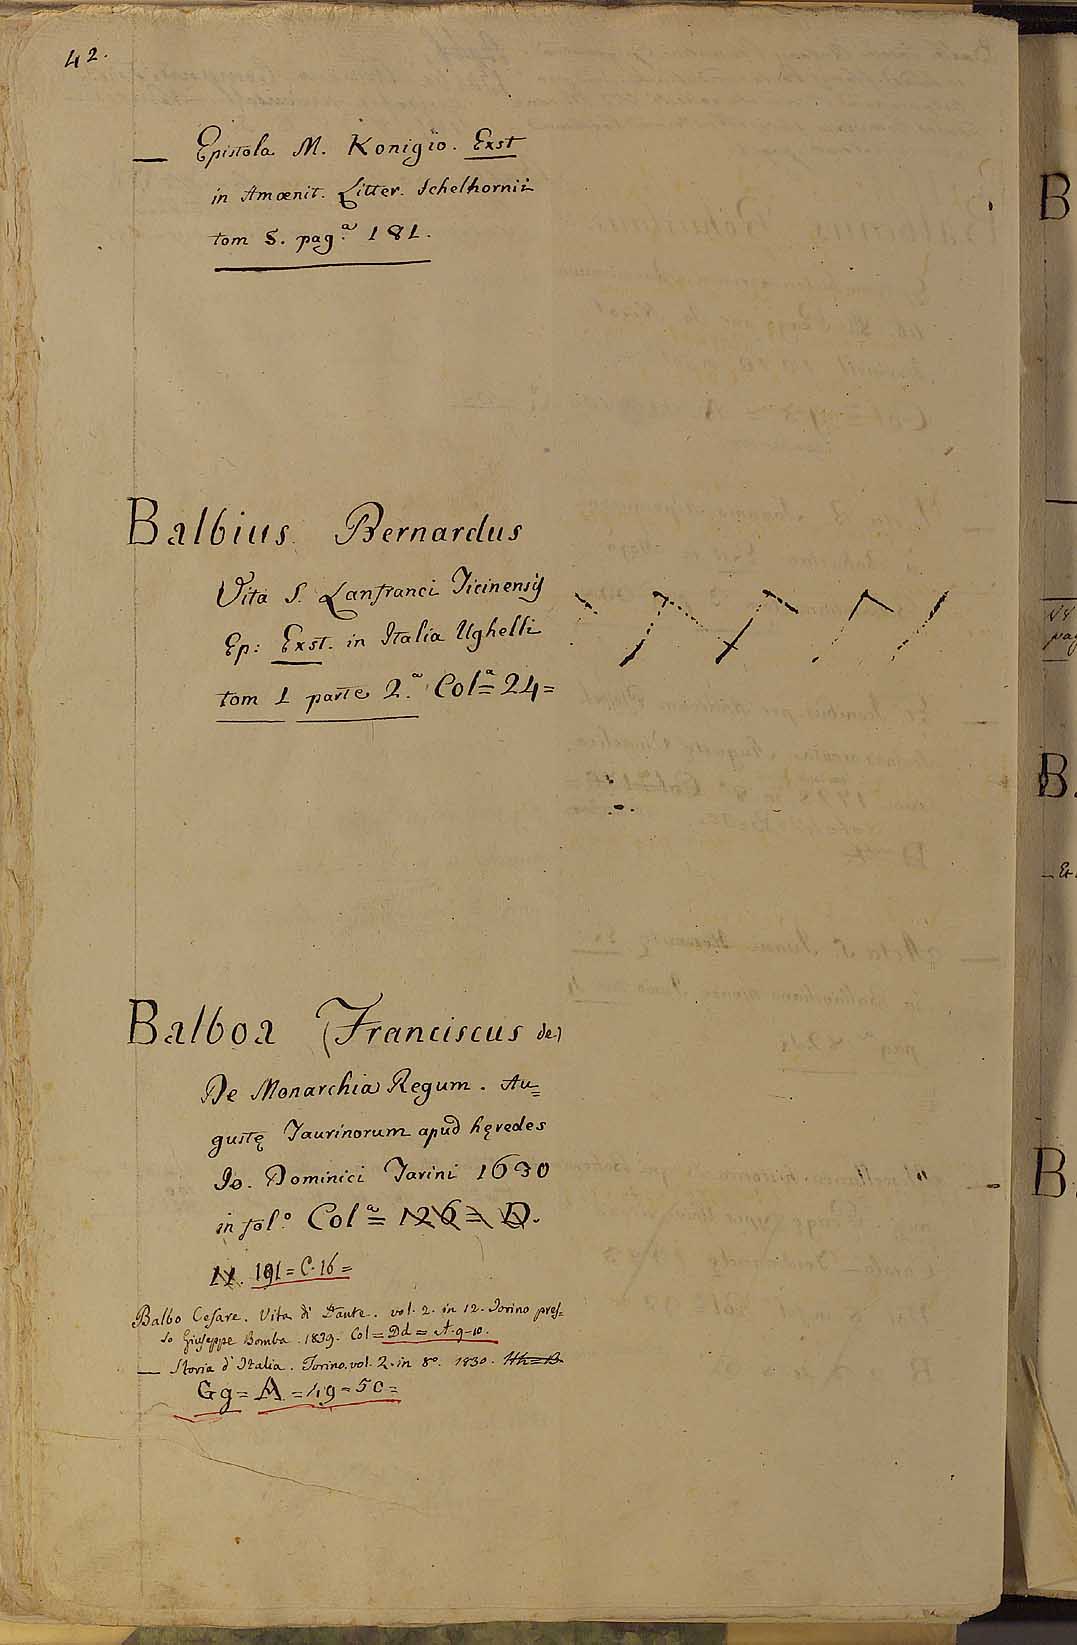 42.
— Epistola M. Konigio. Exst
in Amœnit. Litter. Schelhornii
tom 5. pag.ª 181.
Balbius Bernardus
Vita S. Lanfranci Ticinensis
Ep: Exst. in Italia Ughelli
tom 1 parte 2.ª Colª= 24=
Balboa (Franciscus de)
De Monarchia Regum. Au=
gustę Taurinorum apud hęredes
Io. Dominici Tarini 1630
in fol.º Colª= 126= D.
11. 191=C.16=
Balbo Cesare. Vita di Dante. vol. 2. in 12. Torino pres=
so Giuseppe Bomba. 1839. Col= Dd= A.9-10.
— Storia d'Italia. Torino. vol. 2. in 8º. 1830. Hh=B
Gg= A=49=50=
B
B.
Et
B